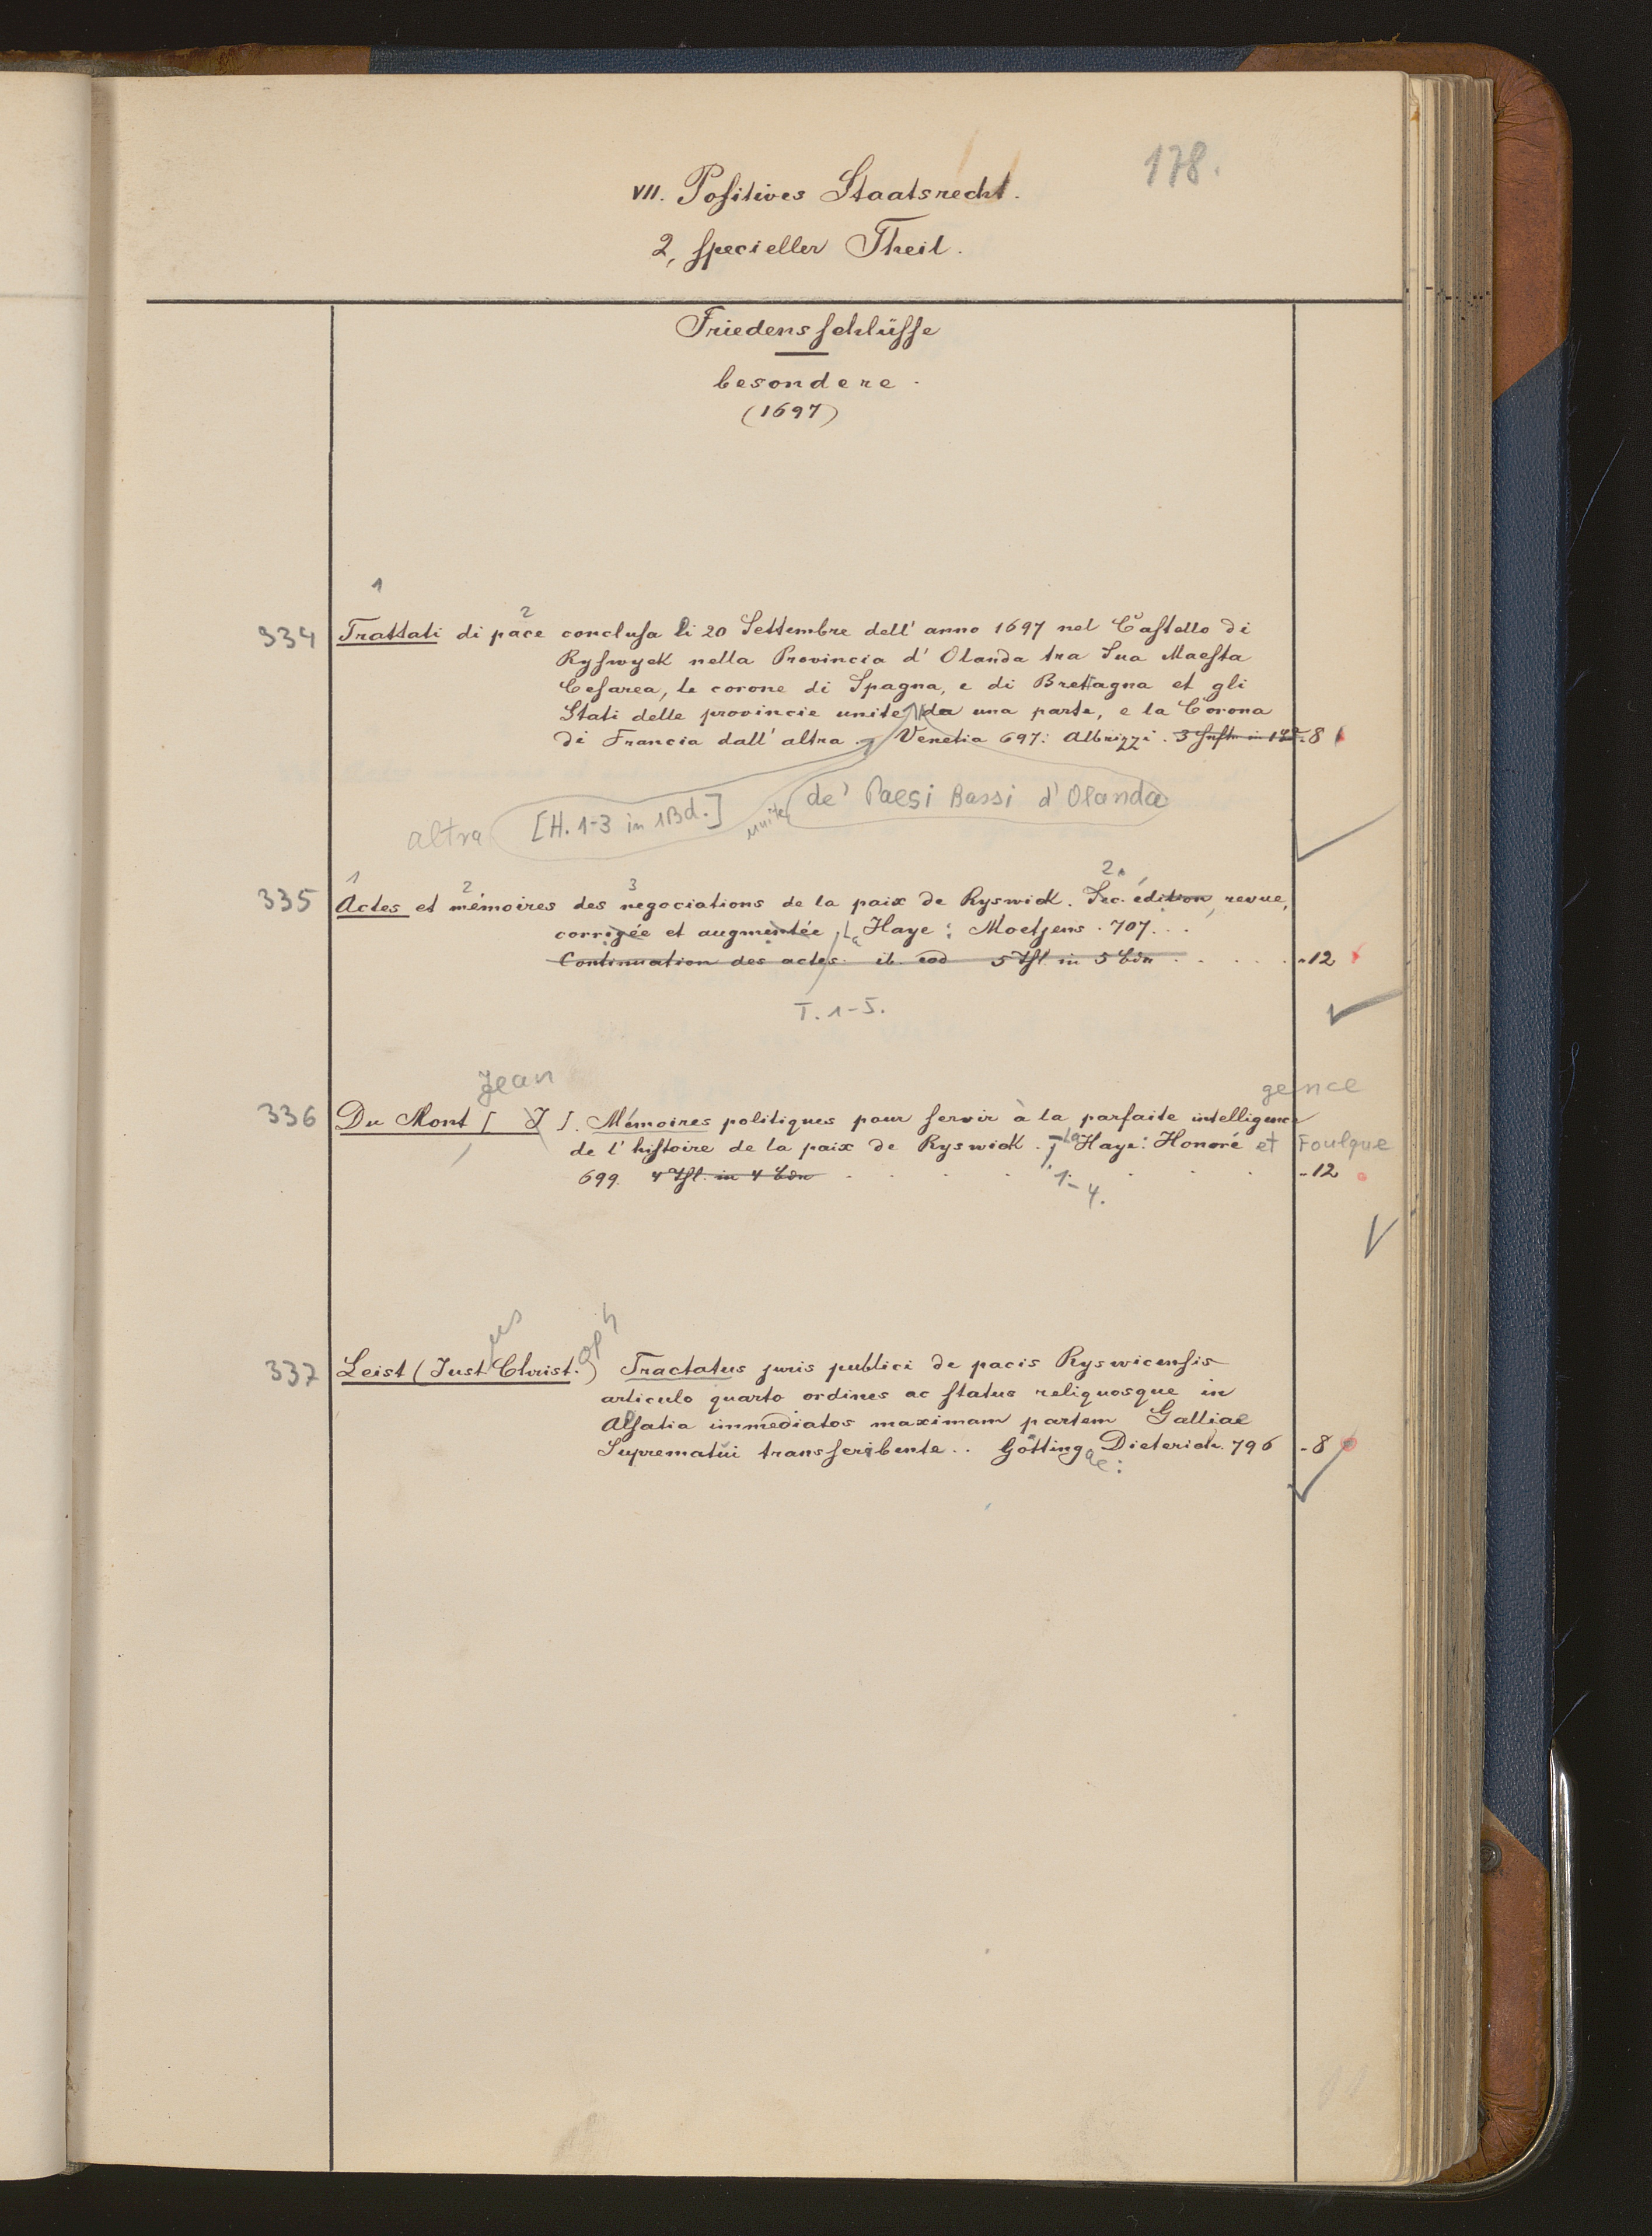 178.
VII. Positives Staatsrecht.
2, specieller Theil.
Friedensschlüsse
besondere.
(1697)
1
2
334 Trattati di pace conclusa li 20 Settembre dell' anno 1697 nel Castello di
Ryswyck nella Provincia d' Olanda tra Sua Maesta
Cesarea, le corone di Spagna, e di Bretagna et gli
Stati delle provincie unite da una parte, e la Corona
di Francia dall' altra. Venetia 697: Albrizzi. -8
altra [H. 1-3 in 1Bd.] unite de' Paesi Bassi d'Olanda
1 2 3 2.
335 Actes et mémoires des negociations de la paix de Ryswick. Sec. édition, revue,
corrigée et augmentée, La Haye: Moetjens. 707...
Continuation des actes. ib. eod 5 Thl. in 5 Bdn . . . . . -12
T. 1-5.
Jean gence
336 Du Mont [ J ]. Mémoires politiques pour servir à la parfaite intelligence
de l' histoire de la paix de Ryswick. La Haye: Honoré et Foulque
699. 4 Thl. in 4 Bdn . . . . . . -12
1-4.
us oph
337 Leist (Just Christ.) Tractatus juris publici de pacis Ryswicensis
articulo quarto ordines ac status reliquosque in
Alsatia immediatos maximam partem Galliae
Suprematui transscribente.. Götting Dieterich. 796 -8
ae: